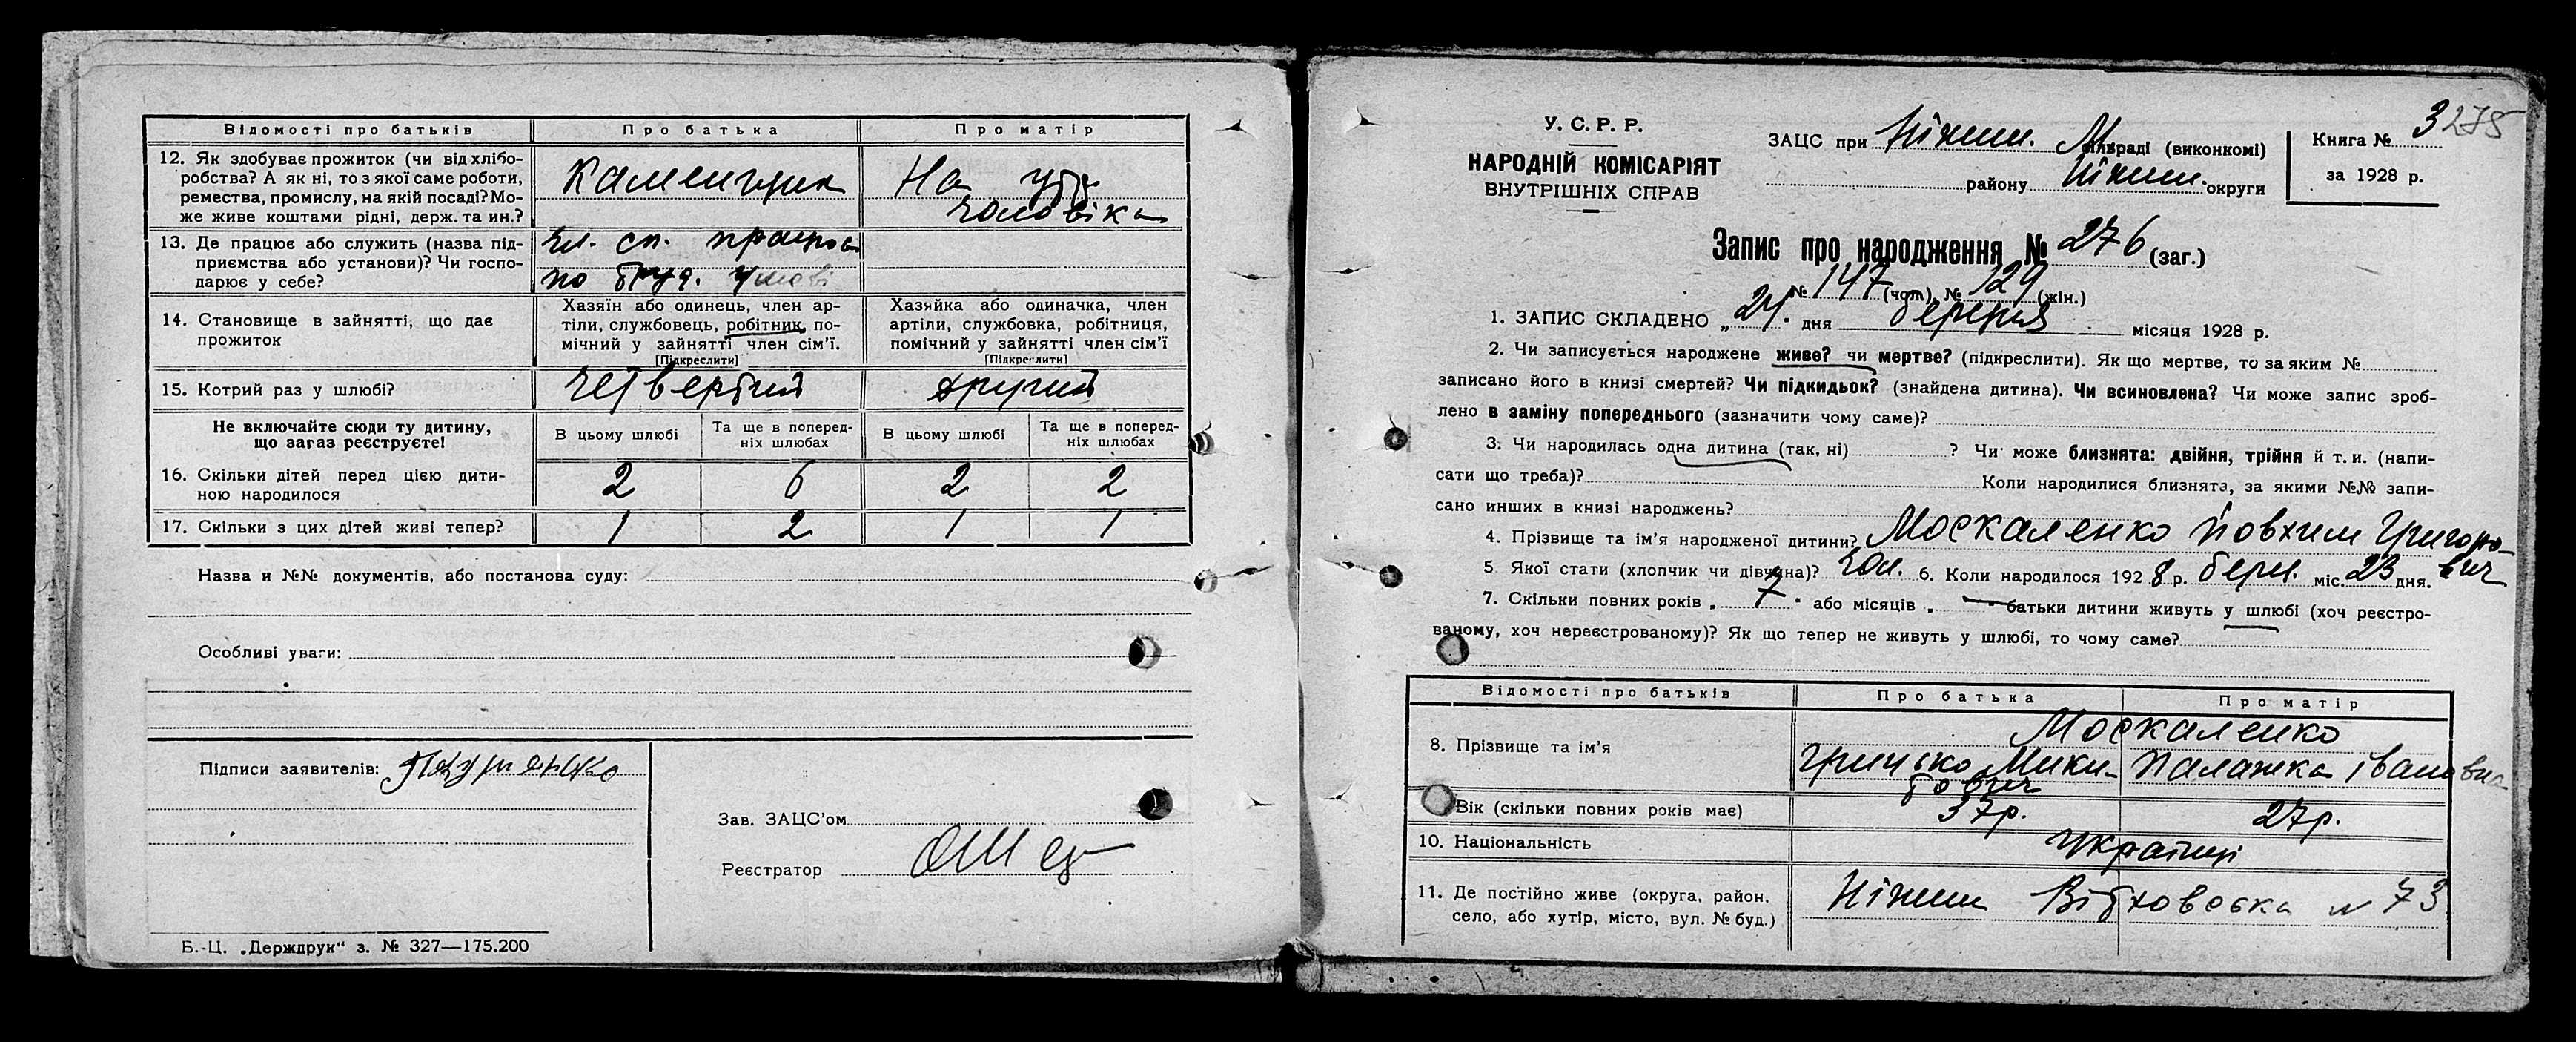 Відомості про батьків Про батька Про матір
12. Як здобуває прожиток (чи від хлібо-
робства? А як ні, то з якої саме роботи,
ремества, промислу, на якій посаді? Мо-
же живе коштами рідні, держ. та ин.?
Каменщик
На утр.
чоловіка
13. Де працює або служить (назва під-
приємства або установи)? Чи госпо-
дарює у себе?
чл. сп.
по буд.
14. Становище в зайнятті, що дає
прожиток
Хазяїн або одинець, член ар-
тіли, службовець, робітник, по-
мічний у зайнятті член сім'ї.
[Підкреслити]
Хазяйка або одиначка, член
артіли, службовка, робітниця,
помічний у зайнятті член сім'ї
[Підкреслити]
15. Котрий раз у шлюбі? четвертий другий
Не включайте сюди ту дитину,
що загаз реєструєте!
В цьому шлюбі
Та ще в поперед-
ніх шлюбах
В цьому шлюбі
Та ще в поперед-
ніх шлюбах
16. Скільки дітей перед цією дити-
ною народилося
2 6 2 2
17. Скільки з цих дітей живі тепер? 1 2 1 1
Назва и №№ документів, або постанова суду:
Особливі уваги:
Підписи заявителів:
Зав. ЗАЦС'ом
Реєстратор
Б.-Ц. „Держдрук" з. № 327—175.200
У. С. Р. Р.
НАРОДНІЙ КОМІСАРІЯТ
ВНУТРІШНІХ СПРАВ
ЗАЦС при Ніжин. М раді (виконкомі)
району Ніжин. округи
Книга № 3
за 1928 р.
275
Запис про народження № 276 (заг.)
№ 147 (чол.), № 129 (жін.)
1. ЗАПИС СКЛАДЕНО „24." дня березня місяця 1928 р.
2. Чи записується народжене живе? чи мертве? (підкреслити). Як що мертве, то за яким №
записано його в книзі смертей? Чи підкидьок? (знайдена дитина). Чи всиновлена? Чи може запис зроб-
лено в заміну попереднього (зазначити чому саме)?
3. Чи народилась одна дитина (так, ні) ? Чи може близнята: двійня, трійня й т. и. (напи-
сати що треба)? Коли народилися близнята, за якими №№ запи-
сано инших в книзі народжень?
4. Прізвище та ім'я народженої дитини? Москаленко Йовхим Григоро-
вич
5 Якої стати (хлопчик чи дівчина)? чол. 6. Коли народилося 1928 р. берез. міс. 23 дня.
7. Скільки повних років „ 7 " або місяців „ — " батьки дитини живуть у шлюбі (хоч реєстро-
ваному, хоч нереєстрованому)? Як що тепер не живуть у шлюбі, то чому саме?
Відомості про батьків Про батька Про матір
8. Прізвище та ім'я
Москаленко
Грицько Мики-
тович
Палажка Івановна
Вік (скільки повних років має) 37р. 27р.
10. Національність Українці
11. Де постійно живе (округа, район,
село, або хутір, місто, вул. № буд.)
Ніжин № 73